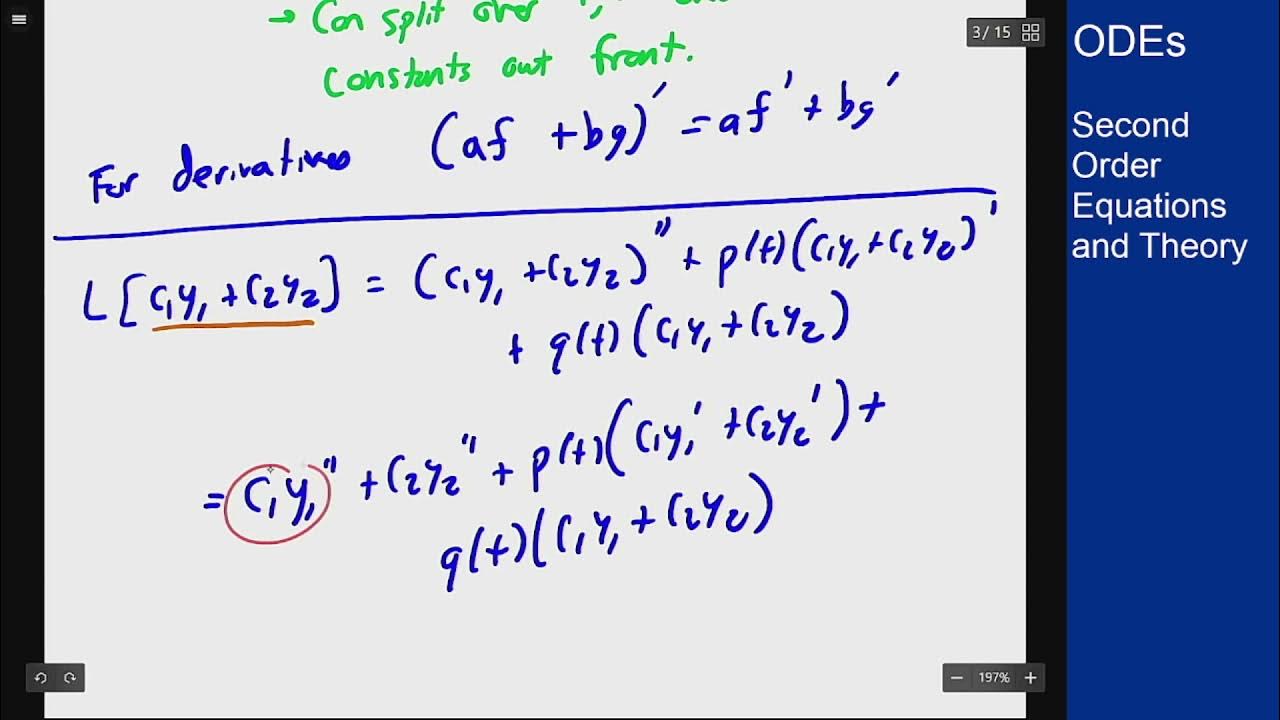 → Can split over
constants out front.
3 / 15
For derivatives (af + bg)' = af' + bg'
L[c₁y₁ + c₂y₂] = (c₁y₁ + c₂y₂)'' + p(t)(c₁y₁ + c₂y₂)'
+ q(t)(c₁y₁ + c₂y₂)
= c₁y₁'' + c₂y₂'' + p(t)(c₁y₁' + c₂y₂') +
q(t)(c₁y₁ + c₂y₂)
197%
ODEs
Second
Order
Equations
and Theory